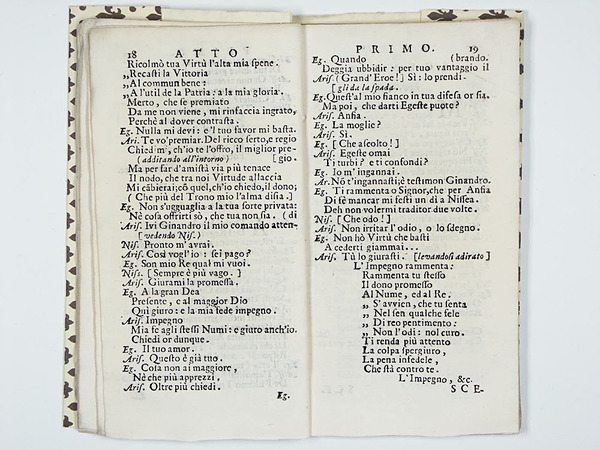 18 ATTO
Ricolmò tua Virtù l'alta mia spene.
„Recasti la Vittoria
„Al commun bene:
„A l'util de la Patria: a la mia gloria.
Merto, che se premiato
Da me non viene, mi rinfaccia ingrato,
Perchè al dover contrasta.
Eg. Nulla mi devi: e 'l tuo favor mi basta.
Ari. Te vo' premiar. Del ricco serto, e regio
Chiedimi, ch'io te l'offro, il miglior pre-
(additando all'intorno) [gio.
Ma per far d'amistà via più tenace
Il nodo, che tra noi Virtude allaccia
Mi cābierai; cō quel, ch'io chiedo, il dono;
( Che più del Trono mio l'alma disia. )
Eg. Non s'ugguaglia a la tua sorte privata:
Nè cosa offrirti sò, che tua non sia. (di
Aris. Ivi Ginandro il mio comando atten-
[vedendo Nis.)
Nis. Pronto m'avrai.
Aris. Così vogl'io: sei pago?
Eg. Son mio Re qual mi vuoi.
Nis. [ Sempre è più vago. ]
Aris. Giurami la promessa.
Eg. A la gran Dea
Presente, e al maggior Dio
Qui giuro: e la mia fede impegno.
Aris. Impegno
Mia fe agli stessi Numi: e giuro anch'io.
Chiedi or dunque.
Eg. Il tuo amor.
Aris. Questo è già tuo.
Eg. Cosa non ai maggiore,
Nè che più apprezzi.
Aris. Oltre più chiedi.
Eg.
PRIMO. 19
Eg. Quando (brando.
Deggia ubbidir: per tuo vantaggio il
Aris. ( Grand'Eroe! ] Sì: lo prendi.
[ gli da la spada.
Eg. Quest'al mio fianco in tua difesa or sia.
Ma poi, che darti Egeste puote?
Aris. Ansia.
Eg. La moglie?
Aris. Sì.
Eg. [ Che ascolto! ]
Aris. Egeste omai
Ti turbi? e ti confondi?
Eg. Io m'ingannai.
Aris. Nō t'ingannasti; è testimon Ginandro.
Eg. Ti rammenta o Signor, che per Ansia
Di fè mancar mi festi un dì a Nissea.
Deh non volermi traditor due volte.
Nis. [ Che odo! ]
Aris. Non irritar l'odio, o lo sdegno.
Eg. Non hò Virtù che basti
A cederti giammai...
Aris. Tù lo giurasti. [levandosi adirato]
L'Impegno rammenta:
Rammenta tu stesso
Il dono promesso
Al Nume, ed al Re.
„ S'avvien, che tu senta
„ Nel sen qualche fele
„ Di reo pentimento:
„ Non l'odi: nol curo.
Ti renda più attento
La colpa spergiuro,
La pena infedele,
Che stà contro te.
L'Impegno, &c.
SCE-